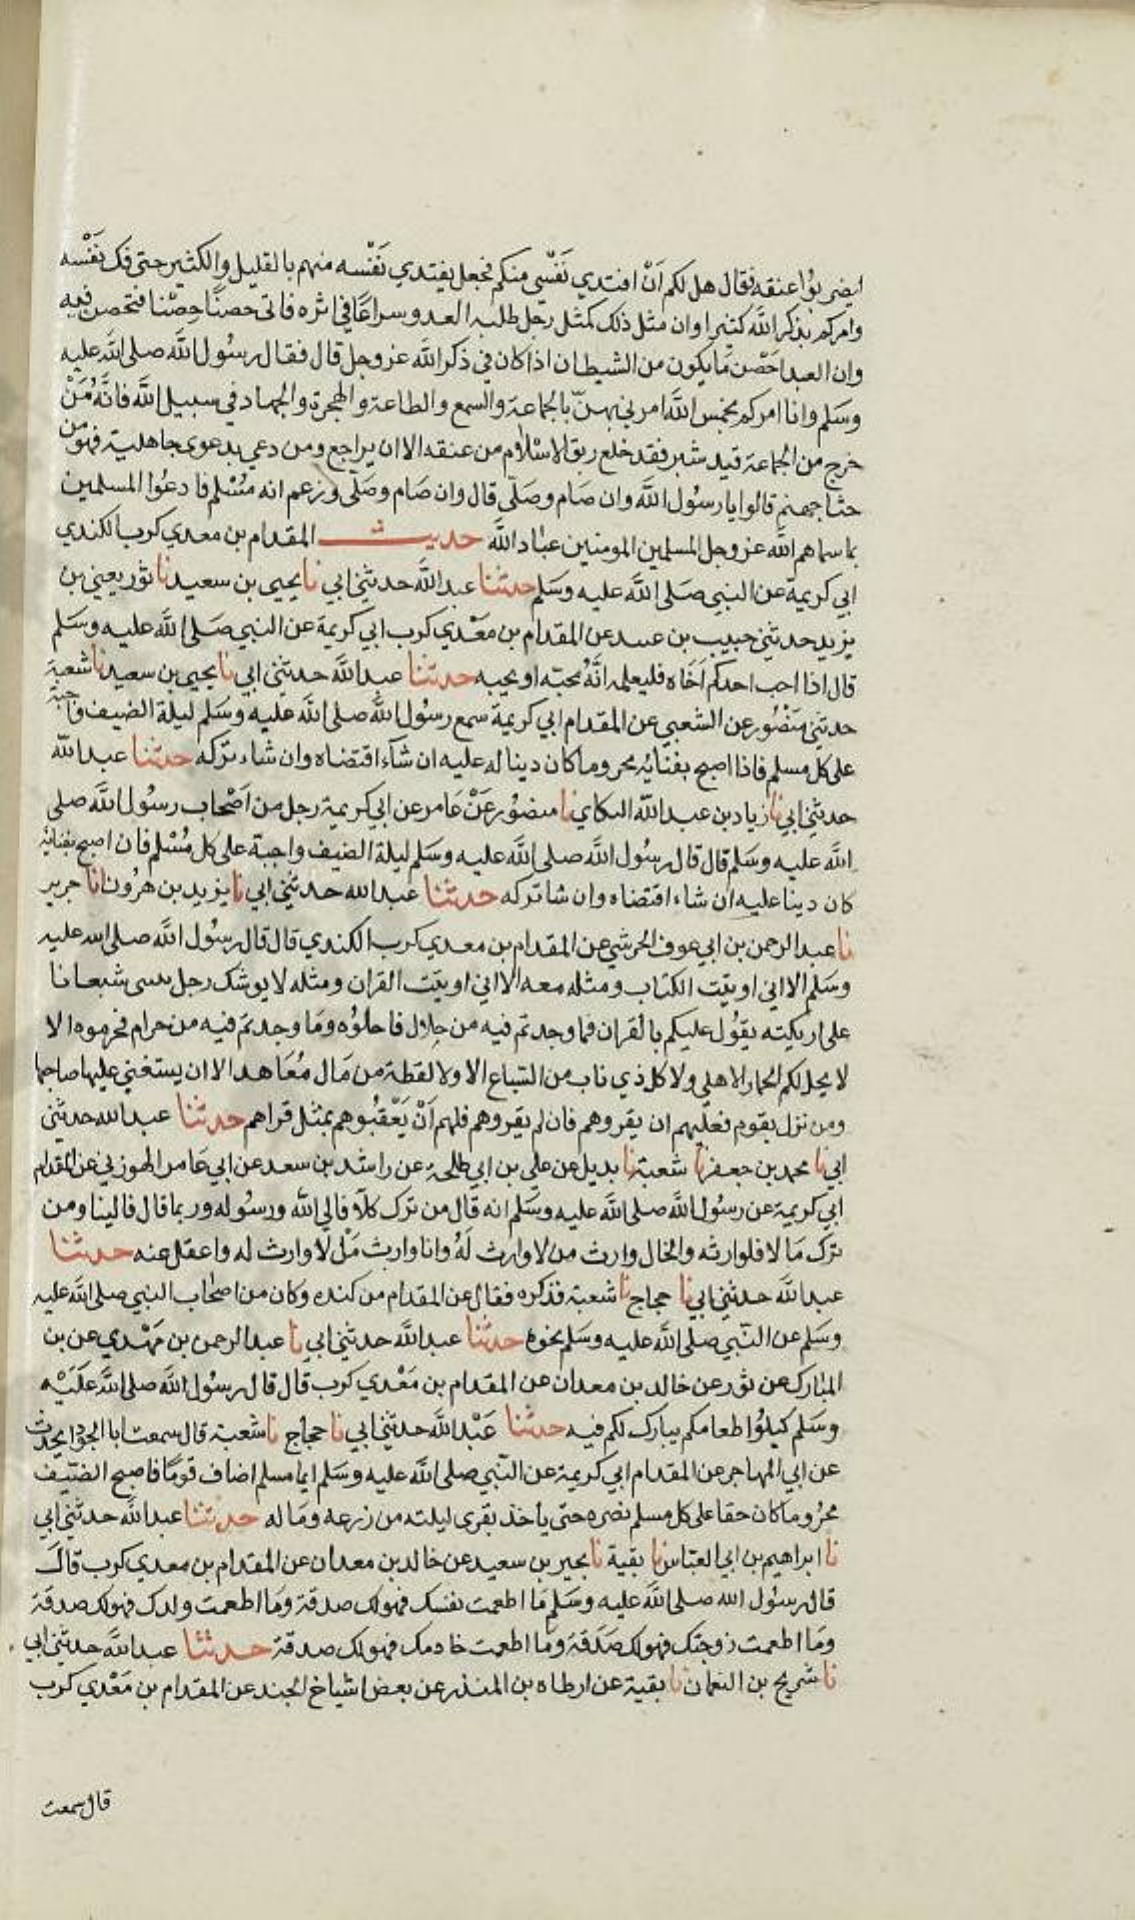 ليضربوا عنقه فقال هل لكم اَنْ افتدي نَفْسي منكم فجعل يفتدي نَفْسه منهم بالقليل والكثير حتى فك نَفْسه
وامركم بذكر الله كثيرا وان مثل ذلك كمثل رجل طلبه العدو سراعًا في اثره فاتى حصنًا حصِيْنا فتحصن فيه
وان العبد احَصْن مَا يكون من الشيطان اذا كان في ذكر الله عز وجل قال فقال رسُول الله صلى الله عليه
وسَلم وانا امركم بخمس الله امرني بهنّ بالجماعة والسمع والطاعة والهجرة والجهاد في سبيل الله فانَّهُ مَنْ
خرج من الجماعة قيد شبر فقد خلع ربق الاسْلام من عنقه الا ان يراجع ومن دعي بدعوى جاهلية فهو من
حثا جهنم قالوا يا رسُول الله وان صَام وصَلّى قال وان صَام وصَلّى وزعم انه مسْلم فادعُوا المسلمين
بما سماهم الله عز وجل المسلمين المومنين عبَاد الله حديث المقدام بن معدي كرب الكندي
ابي كريمة عن النبي صَلى الله عليه وسَلم حدثنا عبد الله حدثني ابي نا يحيى بن سعيد نا ثور يعني بن
يزيد حدثني حبيب بن عبيد عن المقدام بن معْدي كرب ابي كريمة عن النبي صَلى الله عليه وسَلم
قال اذا احب احدكم اَخَاه فليعلمه انَّهُ يحبّه او يحبه حدثنا عبد الله حدثني ابي نا يحيى بن سعيد نا شعبة
حدثني منصُور عن الشعبي عن المقدام ابي كريمة سمع رسُول الله صلى الله عليه وسَلم ليلة الضيف واجبة
على كل مسلم فاذا اصبح بفنائه محروما كان دينا له عليه ان شآء اقتضاه وان شاء تركه حدثنا عبد الله
حدثني ابي نا زياد بن عبد الله البكاي نا منصُور عَنْ عَامر عن ابي كريمة رجل من اصْحاب رسُول الله صلى
الله عليه وسَلم قال قال رسُول الله صلى الله عليه وسَلم ليلة الضيف واجبة على كل مسْلم فان اصبح بفنائه
كان دينا عليه ان شاء اقتضاه وان شا تركه حدثنا عبد الله حدثني ابي نا يزيد بن هرُون انا جرير
نا عبد الرحمن بن ابي عوف الجرشي عن المقدام بن معدي كرب الكندي قال قال رسُول الله صلى الله عليه
وسَلم الا اني اوتيت الكتاب ومثله معه الا اني اوتيت القران ومثله لا يوشك رجل ينثني شبعانا
على اريكته يقُول عليكم بالقران فما وجدتم فيه من حلال فاحلوُه ومَا وجدتم فيه من حرام فحرموه الا
لا يحل لكم الحمار الاهلي ولا كل ذي ناب من السّباع الا ولا لقطة من مَال مُعَاهد الا ان يستغني عليها صاحبها
ومن نزل بقوم فعليهم ان يقروهم فان لم يقروهم فلهم اَنْ يَعْقبُوهم بمثل قراهم حدثنا عبد الله حدثني
ابي نا محمد بن جعفر نا شعبة نا بديل عن علي بن ابي طلحة عن راشد بن سعد عن ابي عَامر الهوزني عن المقدام
ابي كريمة عن رسُول الله صلى الله عليه وسَلم انه قال من ترك كلّا فالى الله ورسُوله وربما قال فالينا ومن
ترك مَالا فلوارثه والخال وارث من لا وارث لَهُ وانا وارث مَنْ لا وارث له واعقل عنه حدثنا
عبد الله حدثني ابي نا حجاج نا شعبة فذكره فقال عن المقدام من كنده وكان من اصحَاب النبي صلى الله عليه
وسَلم عن النّبي صلى الله عليه وسَلم نحوه حدثنا عبد الله حدثني ابي نا عبد الرحمن بن مهْدي عن بن
المبَارك عن ثور عن خالد بن معدان عن المقدام بن مَعْدي كرب قال قال رسُول الله صلى الله عَلَيْه
وسَلم كيلُوا طعامكم يبارك لكم فيه حدثنا عَبْد الله حدثني ابي نا حجاج نا شعبة قال سمعت ابا الجودي يحدث
عن ابي المهَاجر عن المقدام ابي كريمة عن النّبي صلى الله عليه وسَلم ايما مسلم اضاف قومًا فاصبح الضيف
محرُوما كان حقا على كل مسلم نصره حتى ياخذ بقرى ليلته من زرعه ومَاله حدثنا عبد الله حدثني ابي
نا ابراهيم بن ابي العبَّاس نا بقية نا بحير بن سعيد عن خالد بن معدان عن المقدام بن معدي كرب قال
قال رسُول الله صلى الله عليه وسَلم مَا اطعمت نفسك فهو لك صدقة ومَا اطعمت ولدك فهو لك صدقة
ومَا اطعمت زوجتك فهو لك صَدَقة ومَا اطعمت خادمك فهو لك صدقة حدثنا عبد الله حدثني ابي
نا شريح بن النعمان نا بقية عن ارطاه بن المنذر عن بعض اشياخ الجند عن المقدام بن مَعْدي كرب
قال سمعت